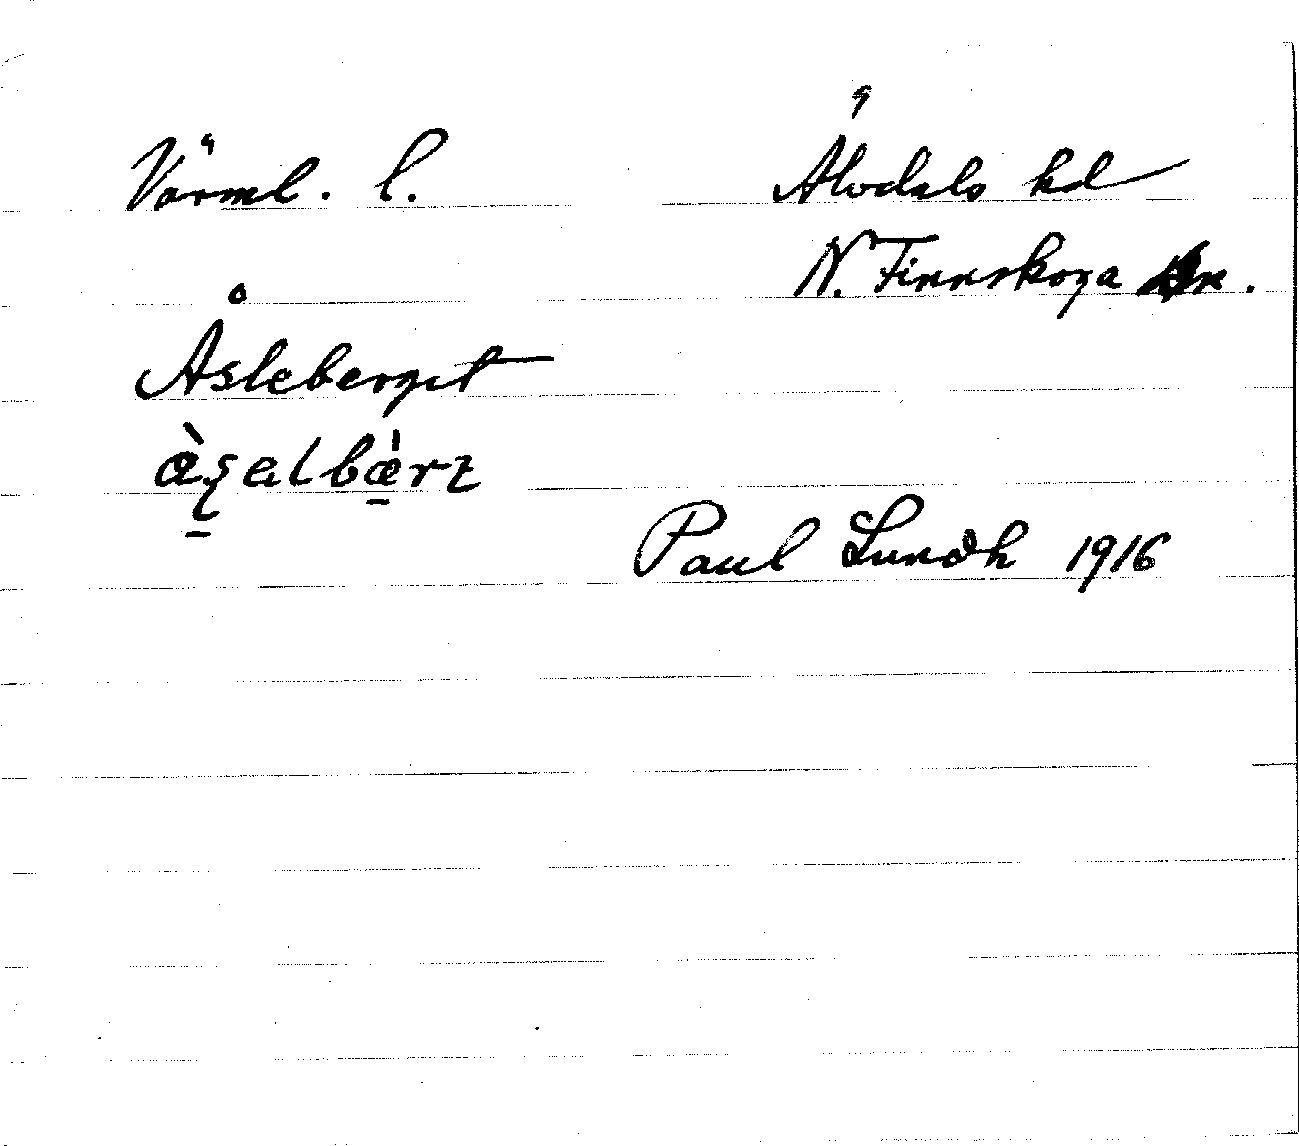 Värml. l.
Älvdals hd
N. Finnskoga sn.
Åsleberget
Paul Lundh 1916